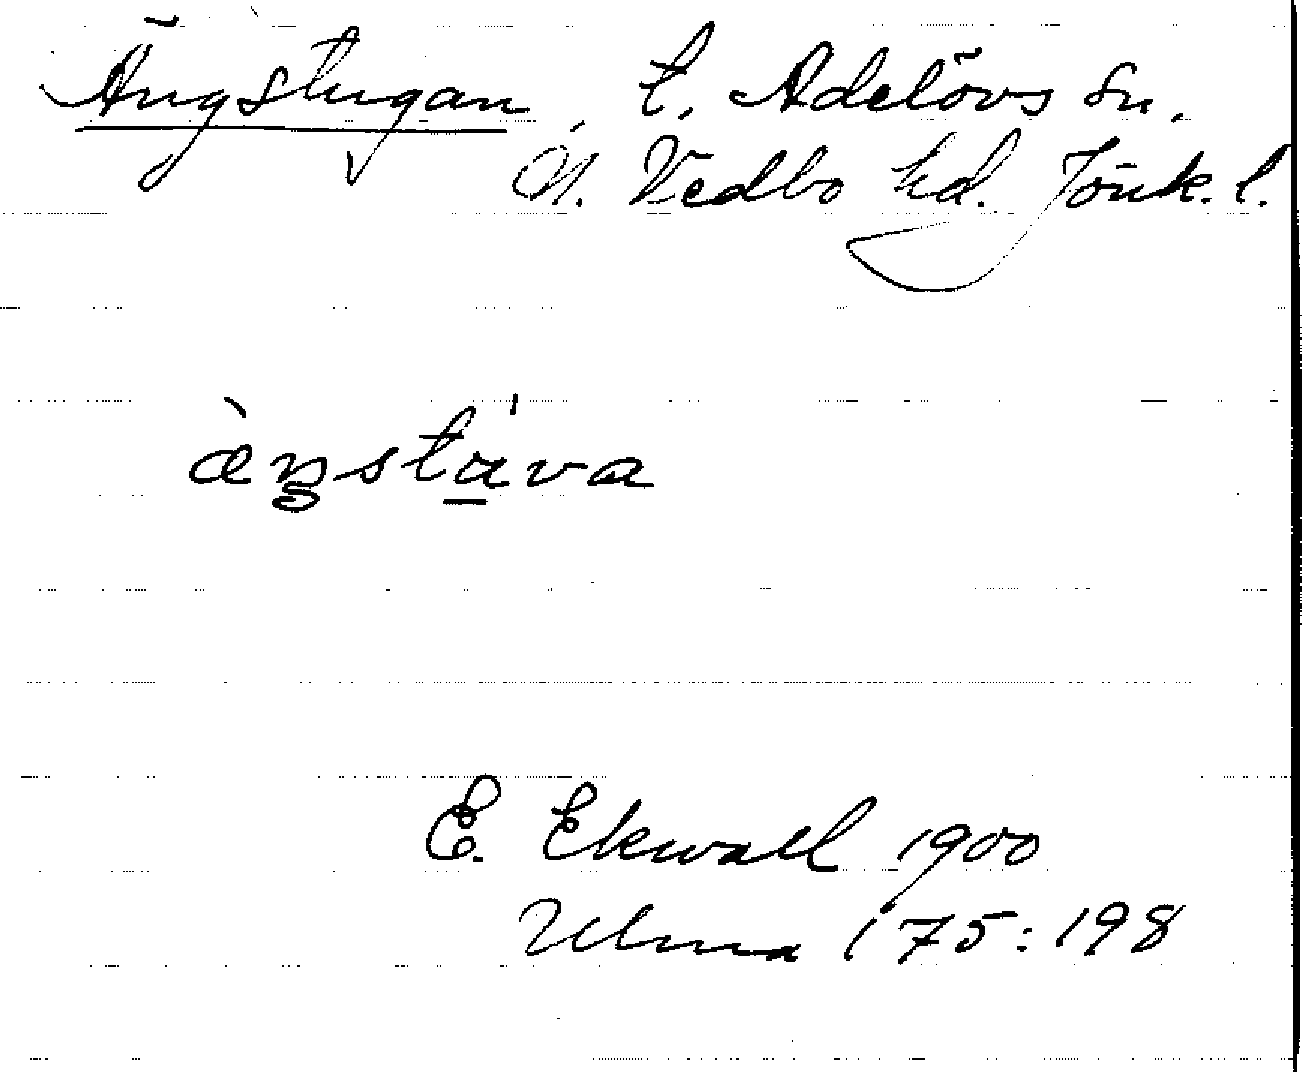 Ängstugan, t. Adelövs sn,
N. Vedbo hd. Jönk. l.
æ̀ŋsta̲̍va
E. Ekwall 1900
Ulma 175:198